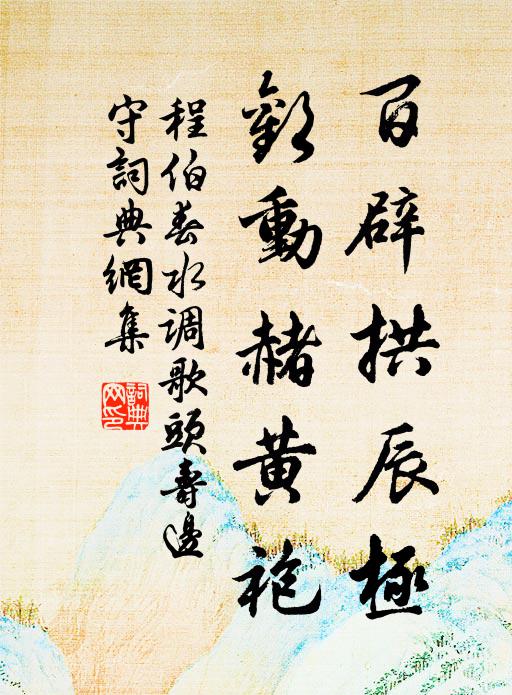 百辟拱辰極
歡動赭黃袍
程伯春水調歌頭壽邊
守詞典網集
詞典網印